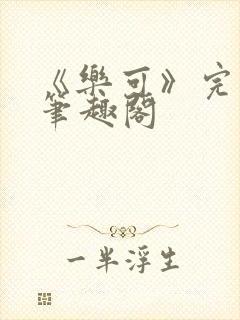 《樂可》完
筆趣閣
一半浮生